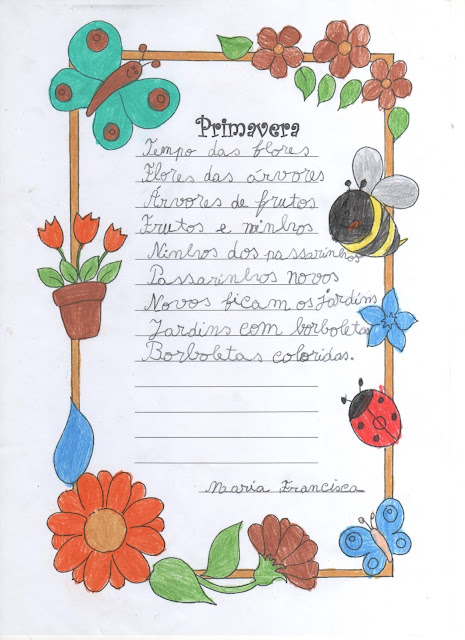 Primavera
Tempo das flores
Flores das arvores
Árvores de frutos
Frutos e ninhos
Ninhos dos passarinhos
Passarinhos novos
Novos ficam os jardins
Jardins com borboletas
Borboletas coloridas.
Maria Francisca